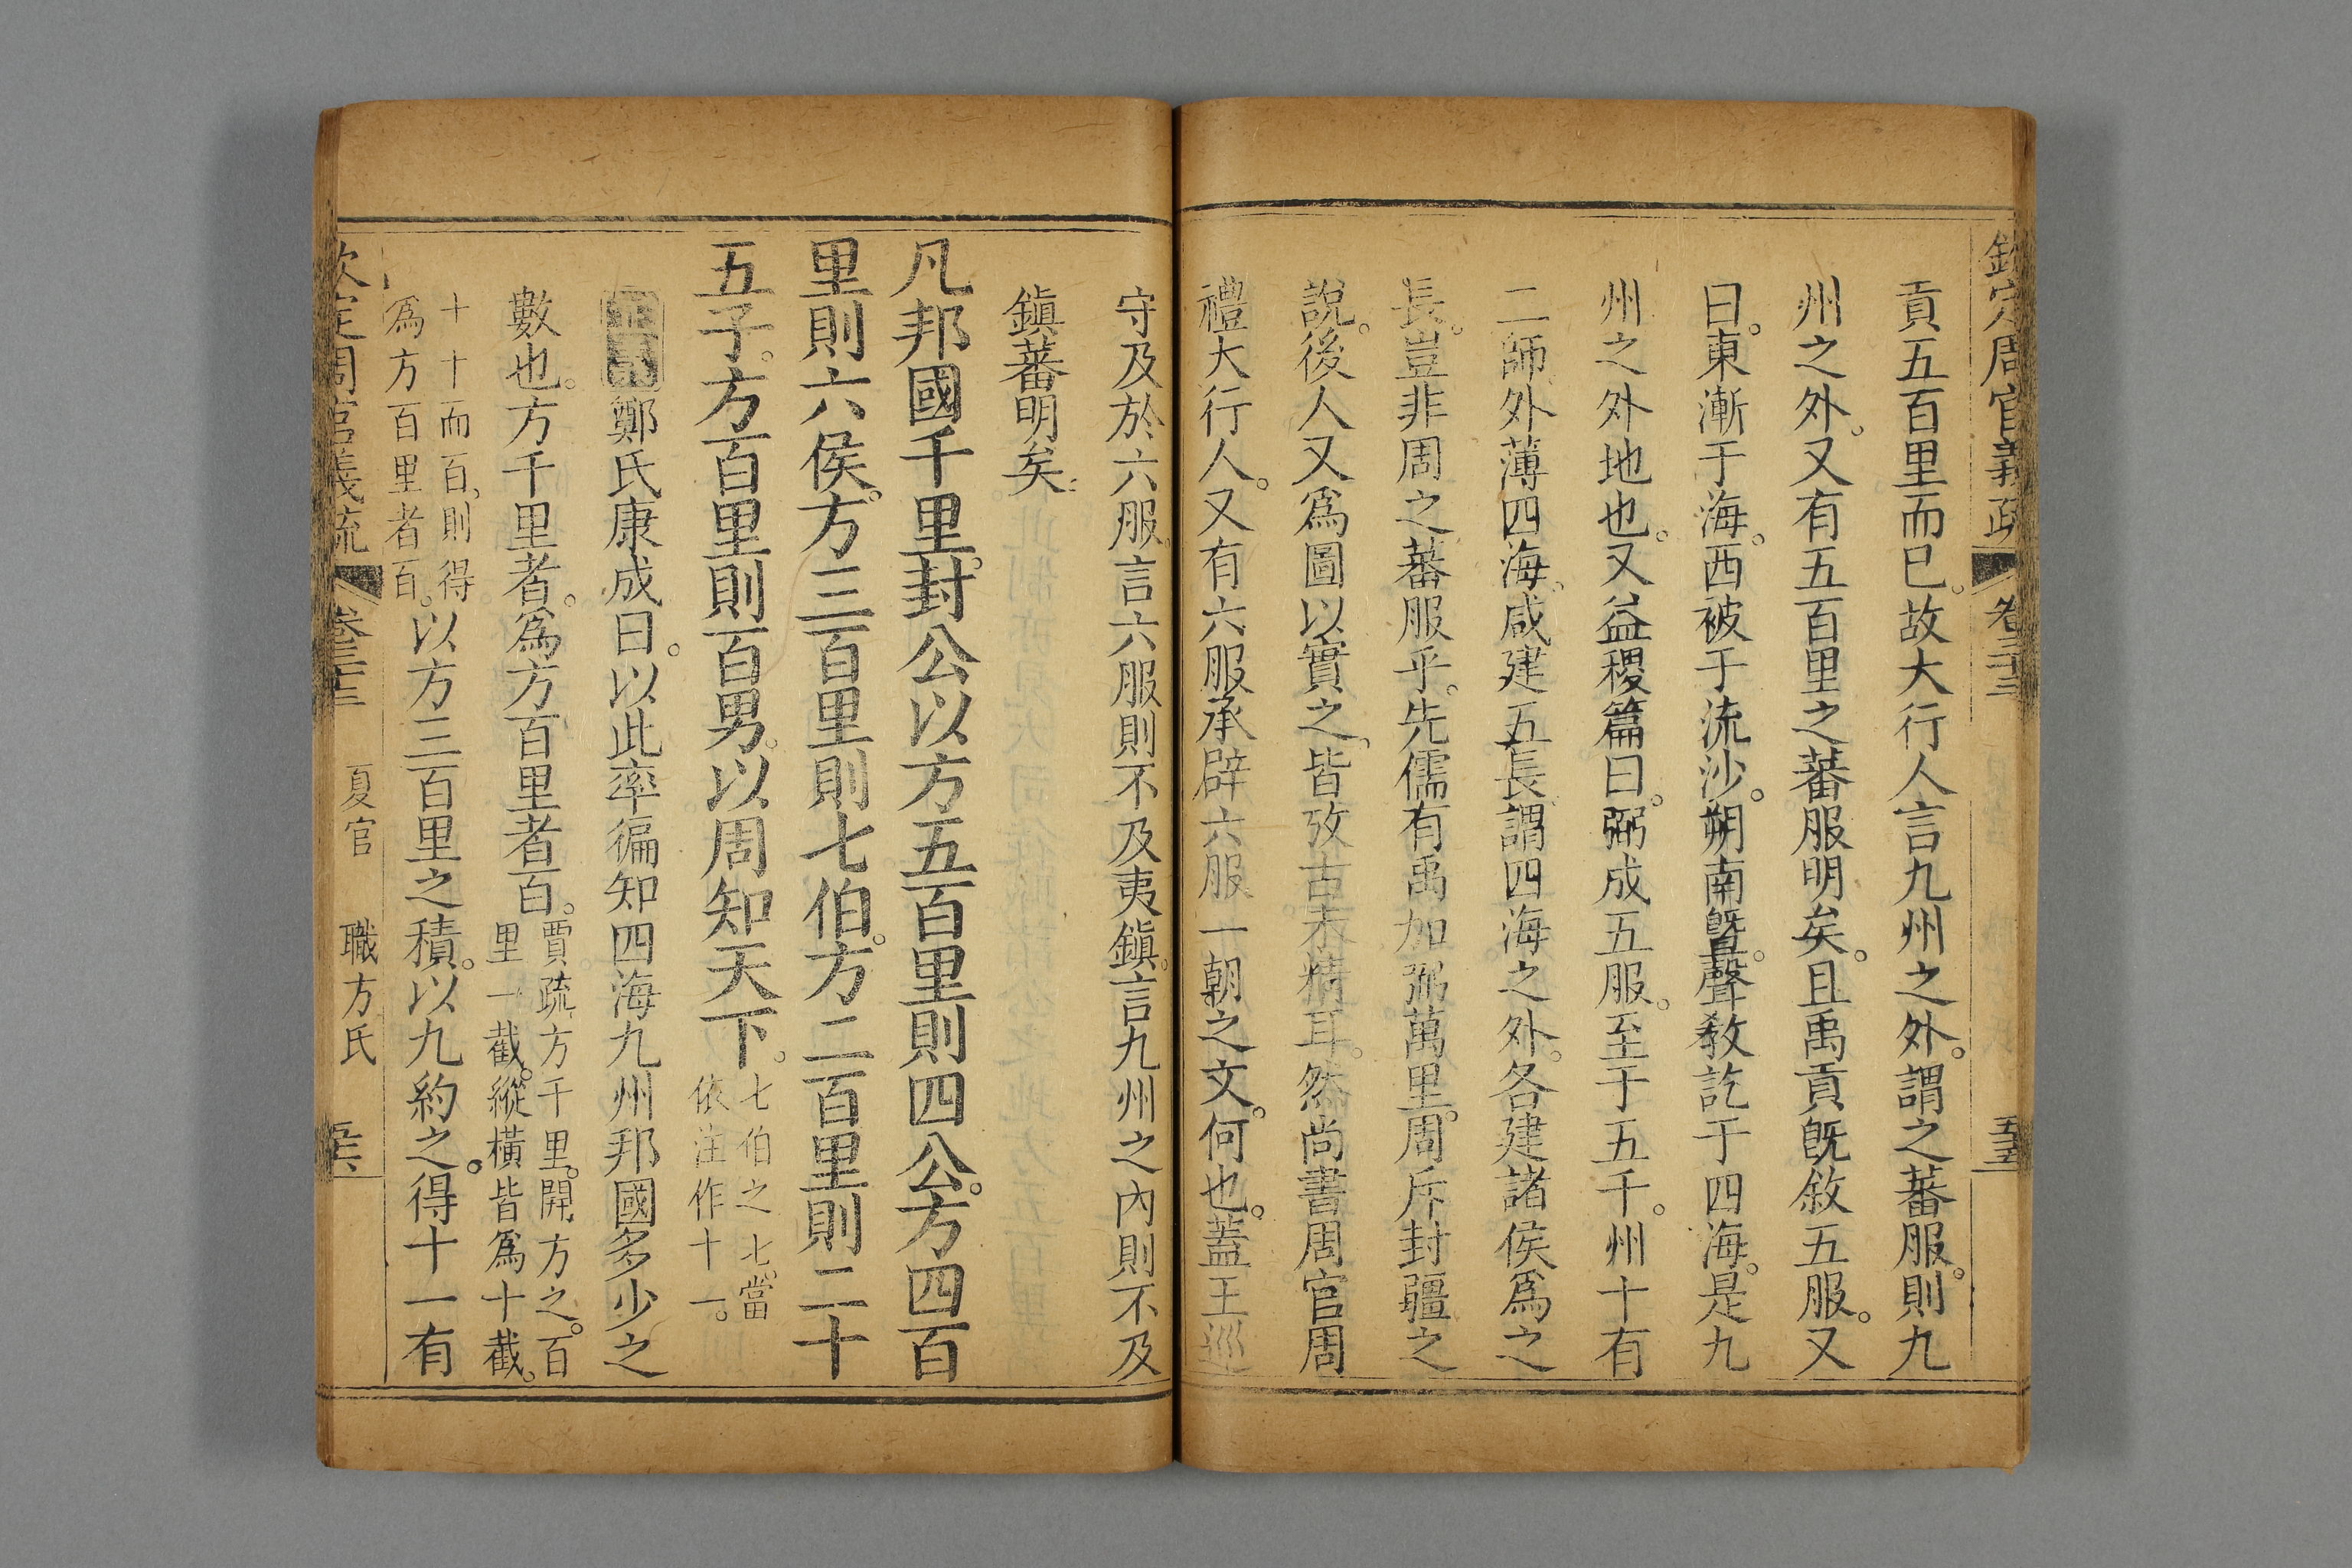 欽定周官義疏 卷三十三 五十五
貢五百里而已。故大行人言九州之外。謂之蕃服。則九
州之外。又有五百里之蕃服明矣。且禹貢旣敘五服。又
曰。東漸于海。西被于流沙。朔南曁。聲教訖于四海。是九
州之外地也。又益稷篇曰。弼成五服。至于五千。州十有
二師。外薄四海。咸建五長。謂四海之外。各建諸侯爲之
長。豈非周之蕃服乎。先儒有禹加弼萬里。周斥封疆之
說。後人又爲圖以實之、皆攷古未精耳。然尚書周官周
禮大行人。又有六服承辟六服一朝之文。何也。蓋王巡
守及於六服。言六服則不及夷鎭。言九州之內則不及
鎭蕃明矣。
凡邦國千里。封公以方五百里則四公。方四百
里則六侯。方三百里則七伯。方二百里則二十
五子。方百里則百男。以周知天下。
七伯之七。當
依注作十一。
鄭氏康成曰。以此率徧知四海九州邦國多少之
數也。方千里者。爲方百里者百。
賈疏。方千里。開方之。百
里一截。縱橫皆爲十截。
十十而百、則得
爲方百里者百。
以方三百里之積。以九約之。得十一有
欽定周官義疏 卷三十三 夏官 職方氏